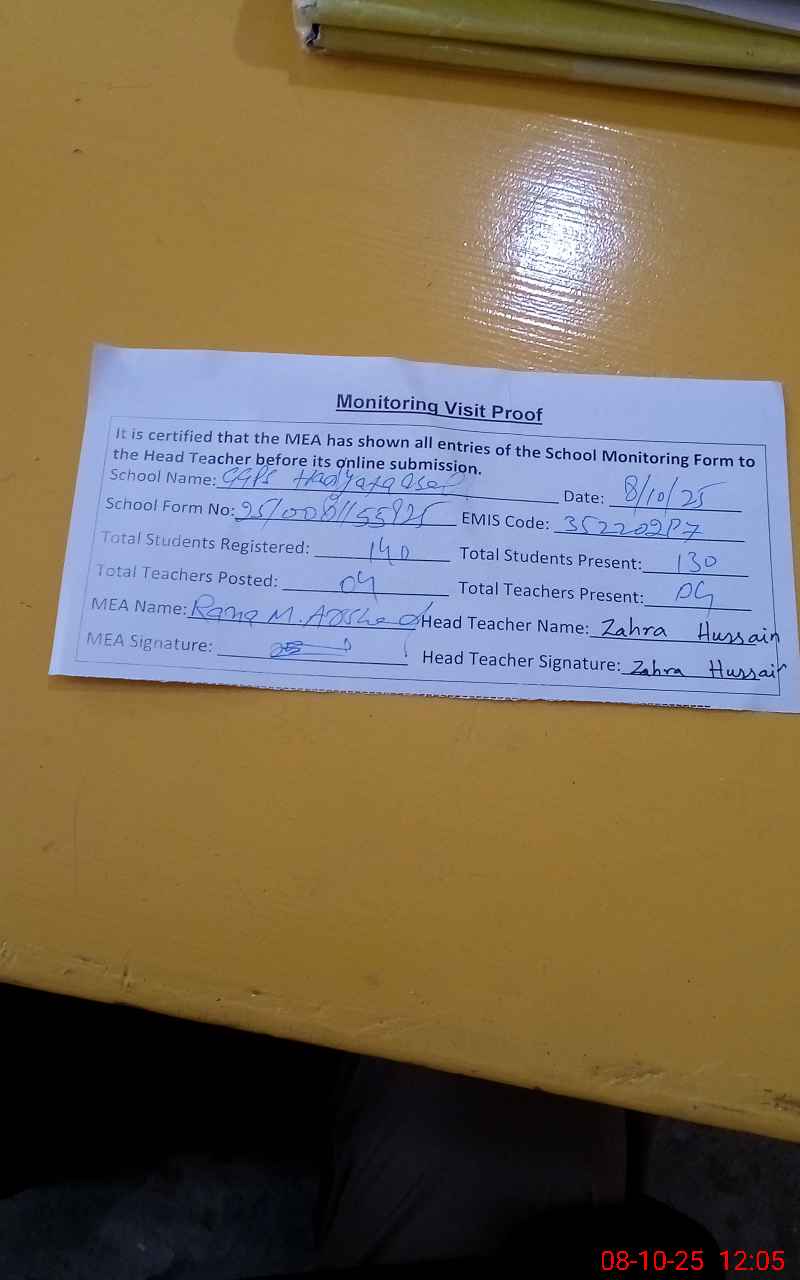 Monitoring Visit Proof
It is certified that the MEA has shown all entries of the School Monitoring Form to
the Head Teacher before its online submission.
School Name: GGPS Date: 8/10/25
School Form No: EMIS Code:
Total Students Registered: 140 Total Students Present: 130
Total Teachers Posted: 04 Total Teachers Present: 04
MEA Name: Rana M. Arshed Head Teacher Name: Zahra Hussain
MEA Signature: Head Teacher Signature: Zahra Hussain
08-10-25 12:05